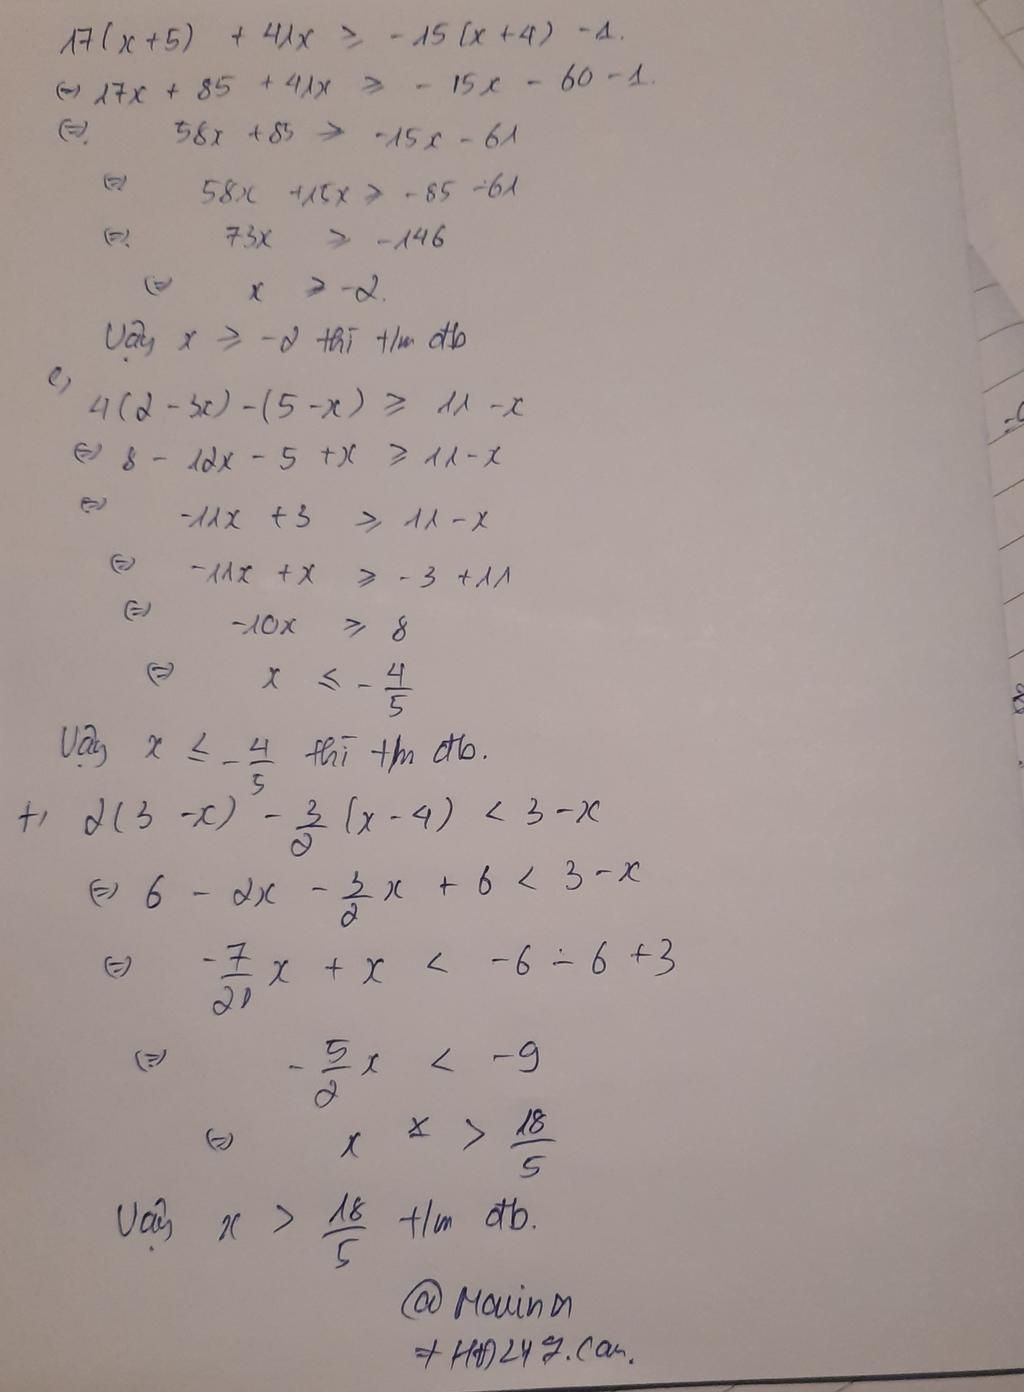 17(x+5) + 41x ≥ -15(x+4) -1.
⇔ 17x + 85 + 41x ≥ - 15x - 60 - 1.
⇔ 58x + 85 ≥ -15x - 61
⇔ 58x +15x ≥ -85 -61
⇔ 73x ≥ -146
⇔ x ≥ -2.
Vậy x ≥ -2 thì t/m đb
e,
4(2 - 3x) - (5 - x) ≥ 11 - x
⇔ 8 - 12x - 5 + x ≥ 11 - x
⇔ -11x + 3 ≥ 11 - x
⇔ -11x + x ≥ -3 + 11
⇔ -10x ≥ 8
⇔ x ≤ -4/5
Vậy x ≤ -4/5 thì t/m đb.
f, 2(3 - x) - 3/2 (x - 4) < 3 - x
⇔ 6 - 2x - 3/2 x + 6 < 3 - x
⇔ -7/2 x + x < -6 - 6 + 3
⇔ -5/2 x < -9
⇔ x > 18/5
Vậy x > 18/5 t/m đb.